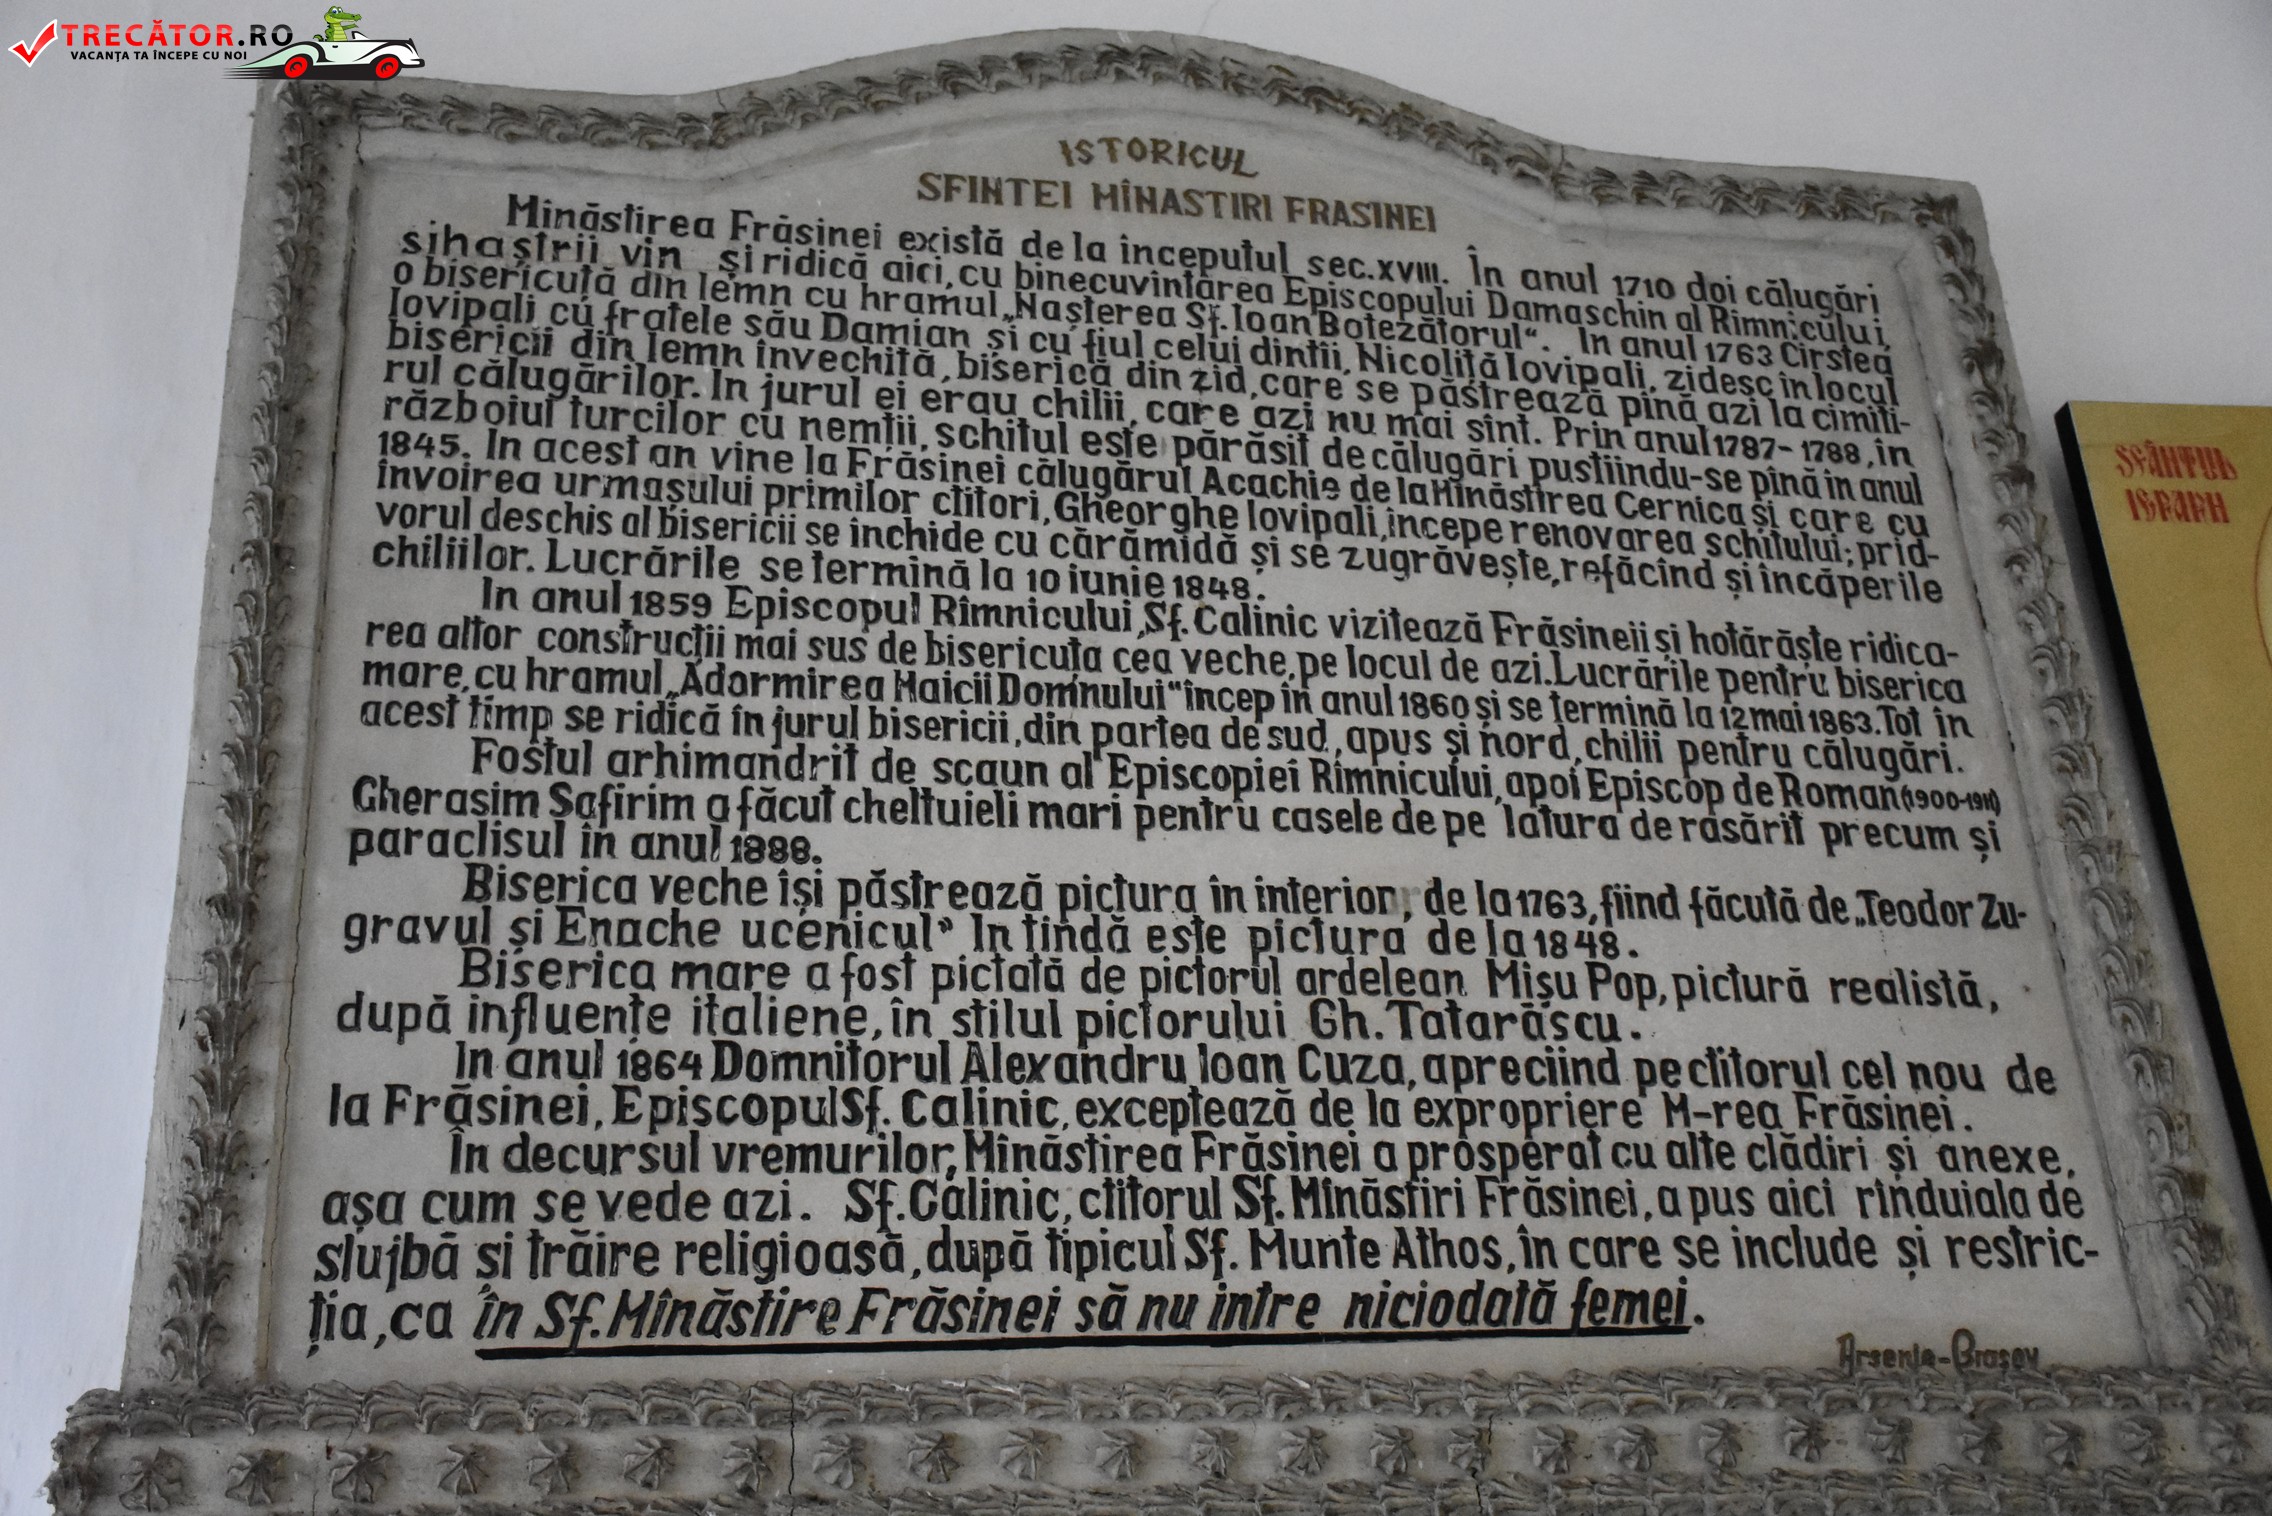 TRECĂTOR.RO
VACANȚA TA ÎNCEPE CU NOI
ISTORICUL
SFINTEI MÎNASTIRI FRASINEI
Mînăstirea Frăsinei există de la începutul sec.XVIII. În anul 1710 doi călugări
sihaștrii vin și ridică aici, cu binecuvîntarea Episcopului Damaschin al Rîmnicului,
o bisericuță din lemn cu hramul „Nașterea Sf. Ioan Botezătorul“. In anul 1763 Cîrstea
Iovipali cu fratele său Damian și cu fiul celui dintîi, Nicoliță Iovipali, zidesc în locul
bisericii din lemn învechită, biserică din zid, care se păstrează pînă azi la cimiti-
rul călugărilor. In jurul ei erau chilii, care azi nu mai sînt. Prin anul 1787-1788, în
războiul turcilor cu nemții, schitul este părăsit de călugări pustiindu-se pînă în anul
1845. In acest an vine la Frăsinei călugărul Acachie de la Mînăstirea Cernica și care cu
învoirea urmașului primilor ctitori, Gheorghe Iovipali, începe renovarea schitului; prid-
vorul deschis al bisericii se închide cu cărămidă și se zugrăvește, refăcînd și încăperile
chiliilor. Lucrările se termină la 10 iunie 1848.
In anul 1859 Episcopul Rîmnicului, Sf. Calinic vizitează Frăsineii și hotărăște ridica-
rea altor construcții mai sus de bisericuța cea veche, pe locul de azi. Lucrările pentru biserica
mare, cu hramul „Adormirea Maicii Domnului“ încep în anul 1860 și se termină la 12 mai 1863. Tot în
acest timp se ridică în jurul bisericii, din partea de sud, apus și nord, chilii pentru călugări.
Fostul arhimandrit de scaun al Episcopiei Rîmnicului, apoi Episcop de Roman (1900-1911)
Gherasim Safirim a făcut cheltuieli mari pentru casele de pe latura de răsărit precum și
paraclisul în anul 1888.
Biserica veche își păstrează pictura în interior, de la 1763, fiind făcută de „Teodor Zu-
gravul și Enache ucenicul” In tindă este pictura de la 1848.
Biserica mare a fost pictată de pictorul ardelean Mișu Pop, pictură realistă,
după influențe italiene, în stilul pictorului Gh. Tatarăscu.
In anul 1864 Domnitorul Alexandru Ioan Cuza, apreciind pe ctitorul cel nou de
la Frăsinei, Episcopul Sf. Calinic, exceptează de la expropriere M-rea Frăsinei.
În decursul vremurilor, Mînăstirea Frăsinei a prosperat cu alte clădiri și anexe,
așa cum se vede azi. Sf. Calinic, ctitorul Sf. Mînăstiri Frăsinei, a pus aici rînduiala de
slujbă și trăire religioasă, după tipicul Sf. Munte Athos, în care se include și restric-
ția, ca în Sf. Mînăstire Frăsinei să nu intre niciodată femei.
Arsenie-Brașov
SFÂNTUL